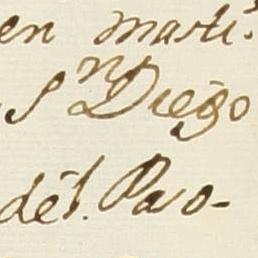 en marti-
Sn Diego
del. Paso-